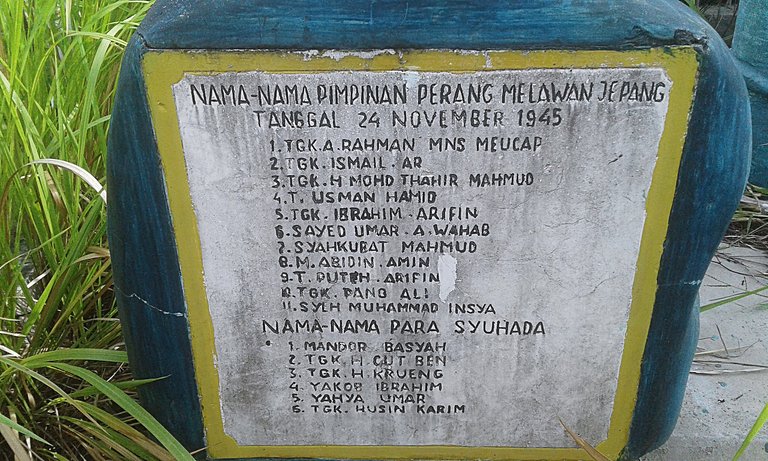 NAMA-NAMA PIMPINAN PERANG MELAWAN JEPANG
TANGGAL 24 NOVEMBER 1945
1. TGK.A. RAHMAN MNS MEUCAP
2. TGK. ISMAIL. AR
3. TGK. H MOHD THAHIR MAHMUD
4. T. USMAN HAMID
5. TGK. IBRAHIM. ARIFIN
6. SAYED UMAR. A. WAHAB
7. SYAHKUBAT MAHMUD
8. M. ABIDIN. AMIN
9. T. PUTEH. ARIFIN
10. TGK. PANG ALI
11. SYEH MUHAMMAD INSYA
NAMA-NAMA PARA SYUHADA
1. MANDOR BASYAH
2. TGK. H. CUT BEN
3. TGK. H. KRUENG
4. YAKOB IBRAHIM
5. YAHYA UMAR
6. TGK. HUSIN KARIM